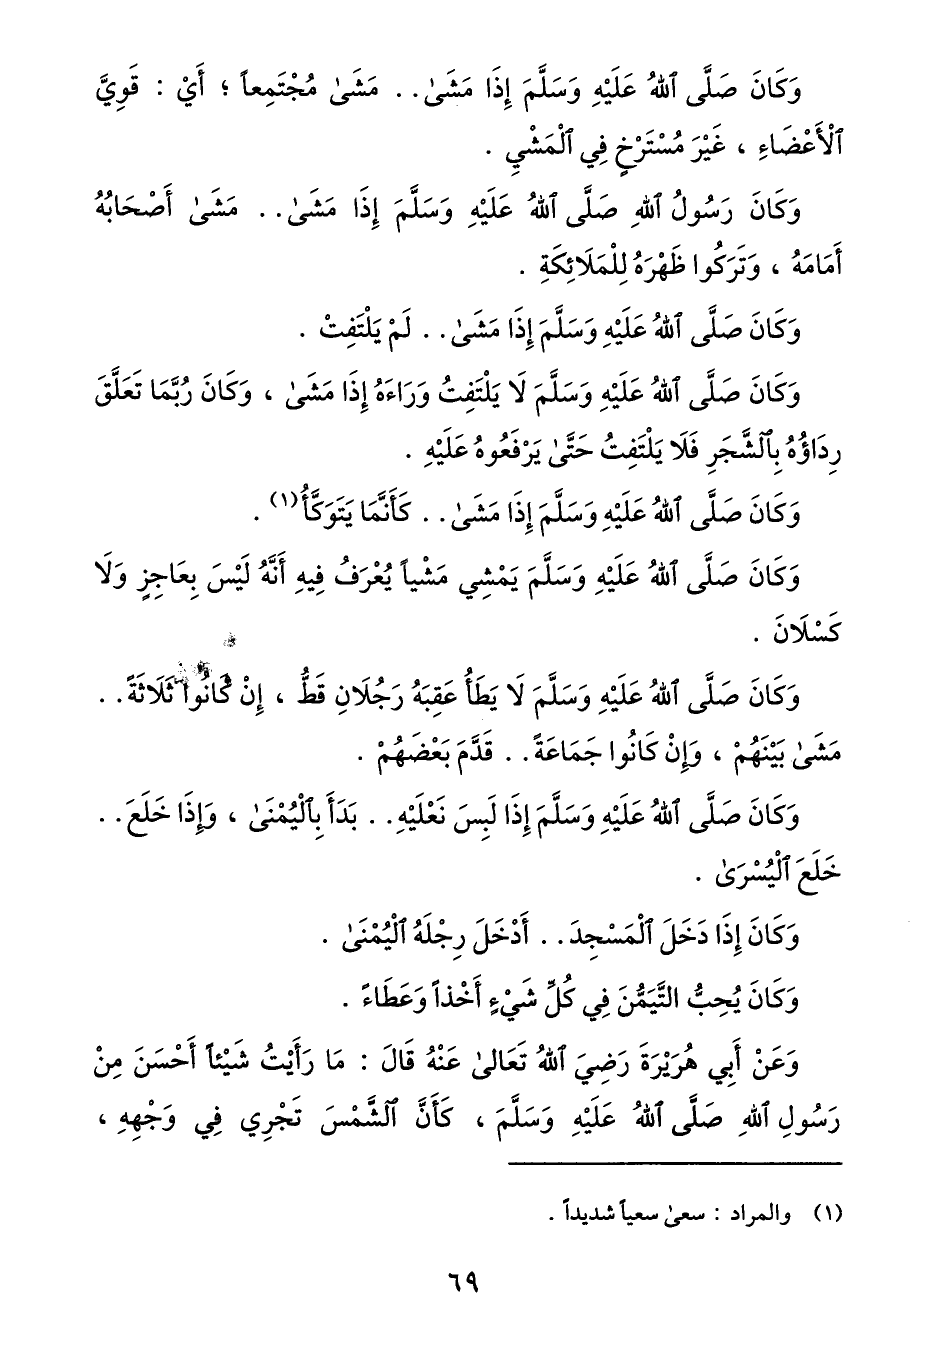 وَكَانَ صَلَّى ٱللهُ عَلَيْهِ وَسَلَّمَ إِذَا مَشَىٰ.. مَشَىٰ مُجْتَمِعاً ؛ أَيْ : قَوِيَّ
ٱلْأَعْضَاءِ ، غَيْرَ مُسْتَرْخٍ فِي ٱلْمَشْيِ .
وَكَانَ رَسُولُ ٱللهِ صَلَّى ٱللهُ عَلَيْهِ وَسَلَّمَ إِذَا مَشَىٰ.. مَشَىٰ أَصْحَابُهُ
أَمَامَهُ ، وَتَرَكُوا ظَهْرَهُ لِلْمَلَائِكَةِ .
وَكَانَ صَلَّى ٱللهُ عَلَيْهِ وَسَلَّمَ إِذَا مَشَىٰ.. لَمْ يَلْتَفِتْ .
وَكَانَ صَلَّى ٱللهُ عَلَيْهِ وَسَلَّمَ لَا يَلْتَفِتُ وَرَاءَهُ إِذَا مَشَىٰ ، وَكَانَ رُبَّمَا تَعَلَّقَ
رِدَاؤُهُ بِٱلشَّجَرِ فَلَا يَلْتَفِتُ حَتَّىٰ يَرْفَعُوهُ عَلَيْهِ .
وَكَانَ صَلَّى ٱللهُ عَلَيْهِ وَسَلَّمَ إِذَا مَشَىٰ.. كَأَنَّمَا يَتَوَكَّأُ(١) .
وَكَانَ صَلَّى ٱللهُ عَلَيْهِ وَسَلَّمَ يَمْشِي مَشْياً يُعْرَفُ فِيهِ أَنَّهُ لَيْسَ بِعَاجِزٍ وَلَا
كَسْلَانَ .
وَكَانَ صَلَّى ٱللهُ عَلَيْهِ وَسَلَّمَ لَا يَطَأُ عَقِبَهُ رَجُلَانِ قَطُّ ، إِنْ كَانُوا ثَلَاثَةً..
مَشَىٰ بَيْنَهُمْ ، وَإِنْ كَانُوا جَمَاعَةً.. قَدَّمَ بَعْضَهُمْ .
وَكَانَ صَلَّى ٱللهُ عَلَيْهِ وَسَلَّمَ إِذَا لَبِسَ نَعْلَيْهِ.. بَدَأَ بِٱلْيُمْنَىٰ ، وَإِذَا خَلَعَ..
خَلَعَ ٱلْيُسْرَىٰ .
وَكَانَ إِذَا دَخَلَ ٱلْمَسْجِدَ.. أَدْخَلَ رِجْلَهُ ٱلْيُمْنَىٰ .
وَكَانَ يُحِبُّ التَّيَمُّنَ فِي كُلِّ شَيْءٍ أَخْذاً وَعَطَاءً .
وَعَنْ أَبِي هُرَيْرَةَ رَضِيَ ٱللهُ تَعَالَىٰ عَنْهُ قَالَ : مَا رَأَيْتُ شَيْئاً أَحْسَنَ مِنْ
رَسُولِ ٱللهِ صَلَّى ٱللهُ عَلَيْهِ وَسَلَّمَ ، كَأَنَّ ٱلشَّمْسَ تَجْرِي فِي وَجْهِهِ ،
(١) والمراد : سعىٰ سعياً شديداً .
٦٩